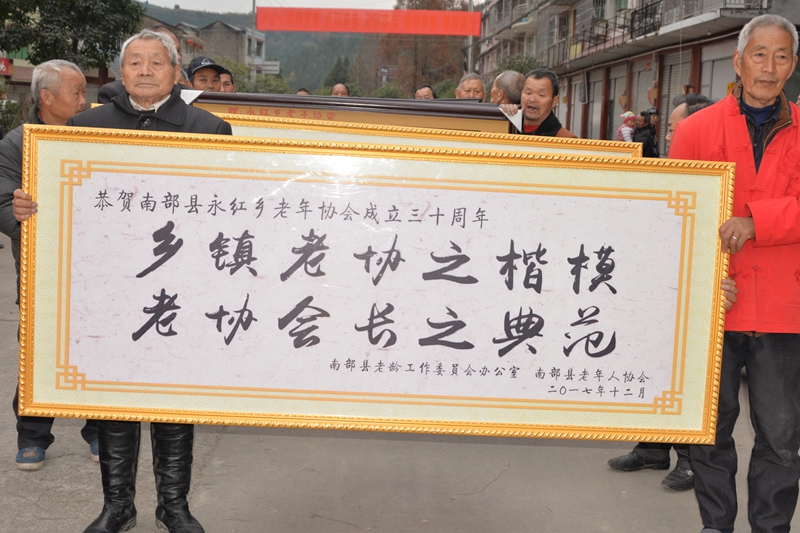 恭贺南部县永红乡老年协会成立三十周年
乡镇老协之楷模
老协会长之典范
南部县老龄工作委员会办公室 南部县老年人协会
二〇一七年十二月